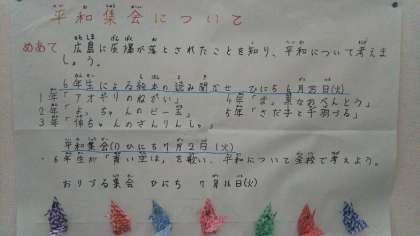 平和集会について
めあて 広島に原爆が落とされたことを知り、平和について考えま
しょう。
6年生による絵本の読み聞かせ ひにち 6月25日(火)
1年「アオギリのねがい」 4年「まっ黒なおべんとう」
2年「 ちゃんのビー玉」 5年「さだ子と千羽づる」
3年「伸ちゃんのさんりんしゃ」
平和集会(1) ひにち 7月2日(火)
・6年生が「青い空は」を歌い、平和について全校で考えよう。
おりづる集会 ひにち 7月16日(火)